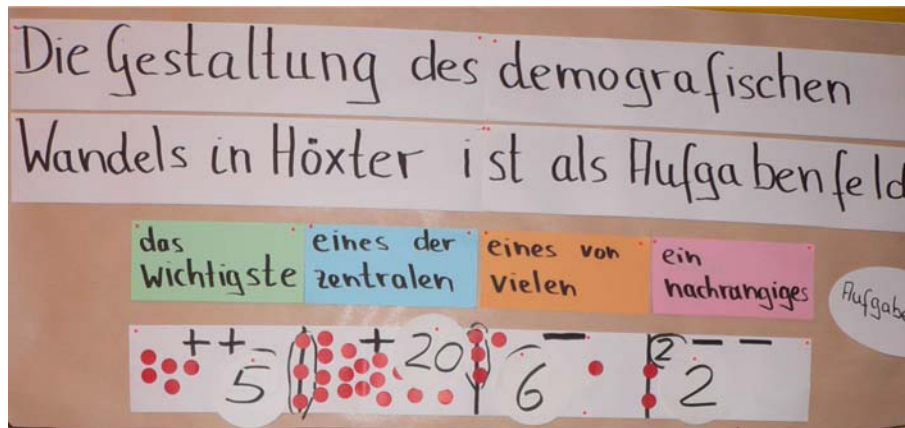 Die Gestaltung des demografischen
Wandels in Höxter ist als Aufgabenfeld
das
wichtigste
eines der
zentralen
eines von
vielen
ein
nachrangiges
Aufgabe
++ + − − −
5 20 6 2 2